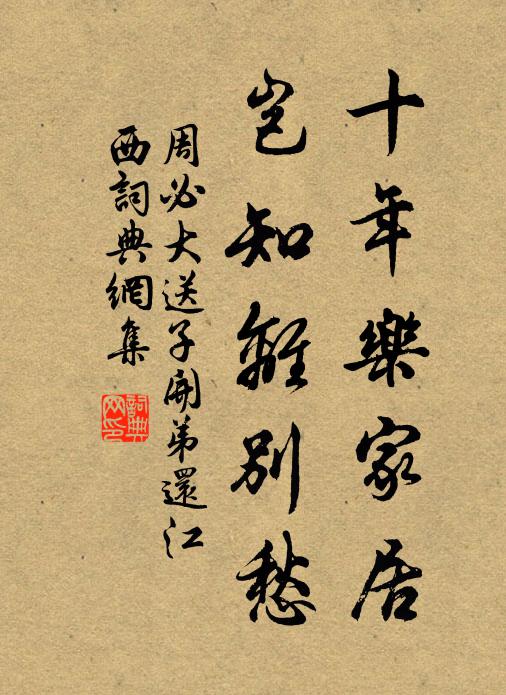 十年樂家居
豈知離別愁
周必大送子開弟還江
西詞典網集
詞典
网印